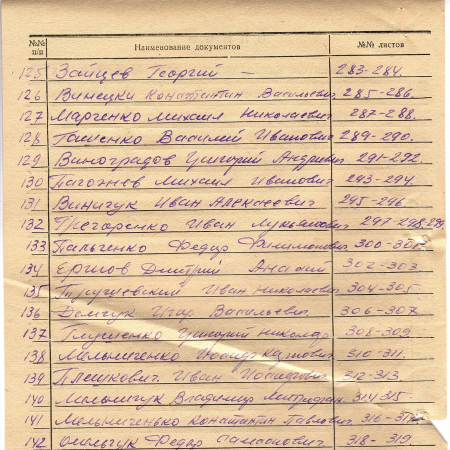 №№ п/п Наименование документов №№ листов
125 Зайцев Георгий — 283-284.
126 Винецки Константин Васильевич 285-286.
127 Марченко Михаил Николаевич 287-288.
128 Василий Иванович 289-290.
129 Виноградов Григорий Андреевич 291-292.
130 Михаил Иванович 293-294.
131 Виничук Иван Алексеевич 295-296
132 Иван Лукьянович 297-298,299
133 Пальченко Федор Филимонович 300-301
134 Ершов Дмитрий 302-303
135 Иван Николаевич 304-305
136 Домчук Игор Васильевич 306-307
137 Григорий 308-309
138 Мельниченко 310-311.
139 Плешкович Иван 312-313.
140 Владимир 314-315
141 Мельниченко Константин Павлович 316-317
142 Федор 318-319.